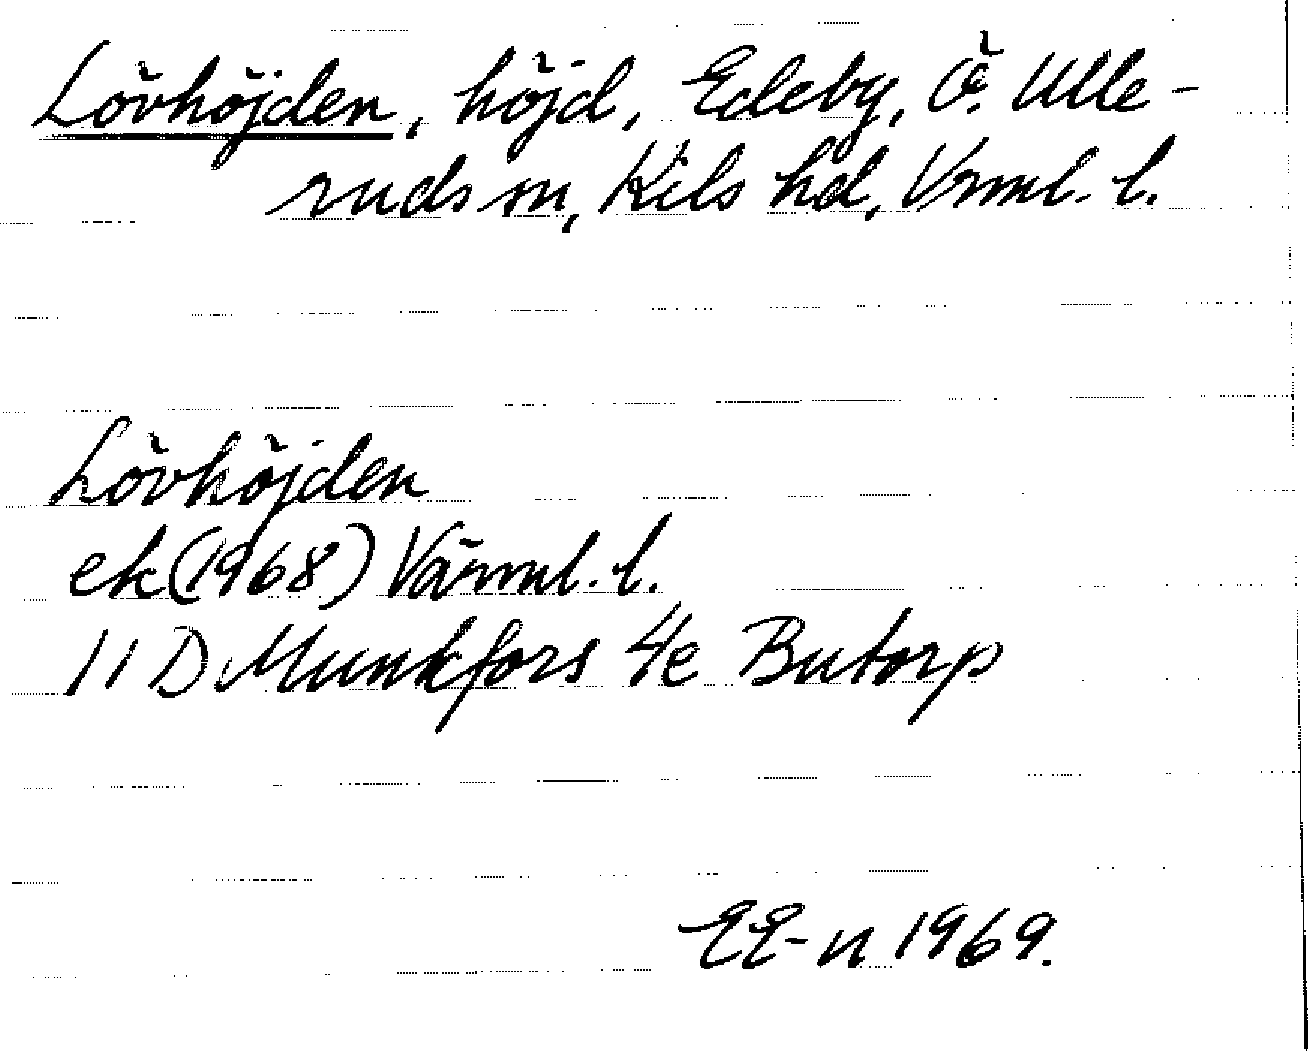 Lövhöjden, höjd, Edeby, Ö. Ulle-
ruds sn, Kils hd, Vrml. l.
Lövhöjden
ek (1968) Värml. l.
11 D Munkfors 4e Butorp
EE-n 1969.